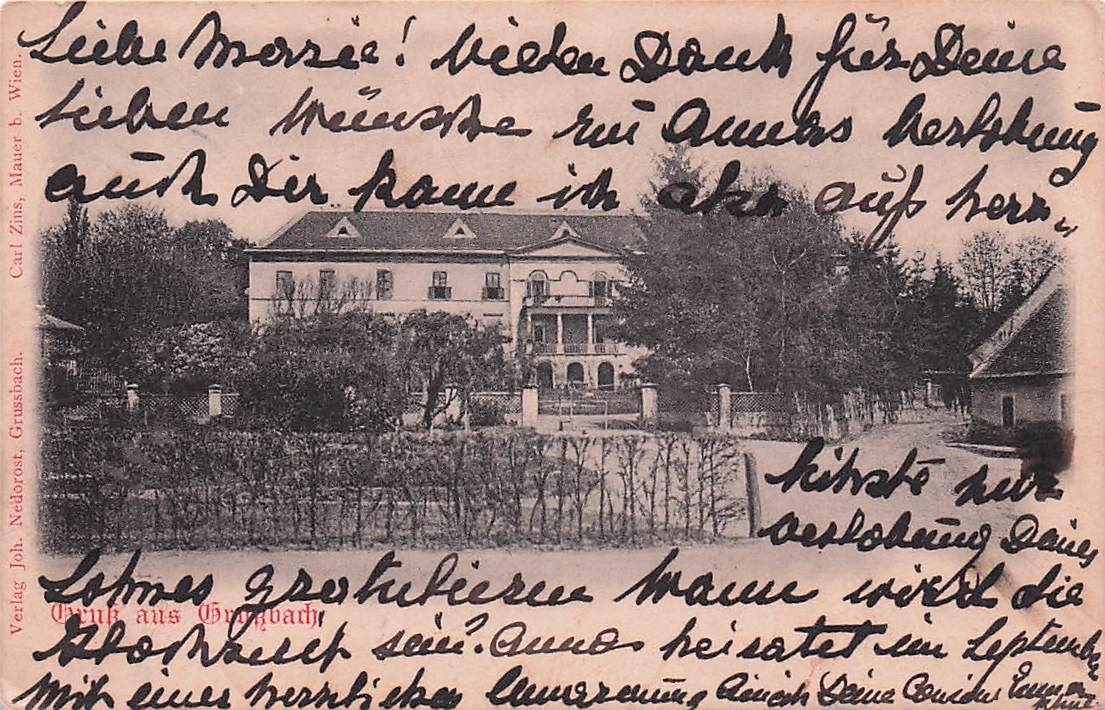 Liebe Marie! Vielen Dank für Deine
lieben Wünsche zu Annas Verlobung
auch Dir kann ich aber auf herz„
lichste zur
Verlobung Deines
Sohnes gratulieren wann wird die
Hochzeit sein? Anna heiratet im September
Mit einer herzlichen Umarmung Deine Cousine Emma
Gruß aus Grußbach
Verlag Joh. Nedorost, Grussbach. Carl Zins, Mauer b. Wien.